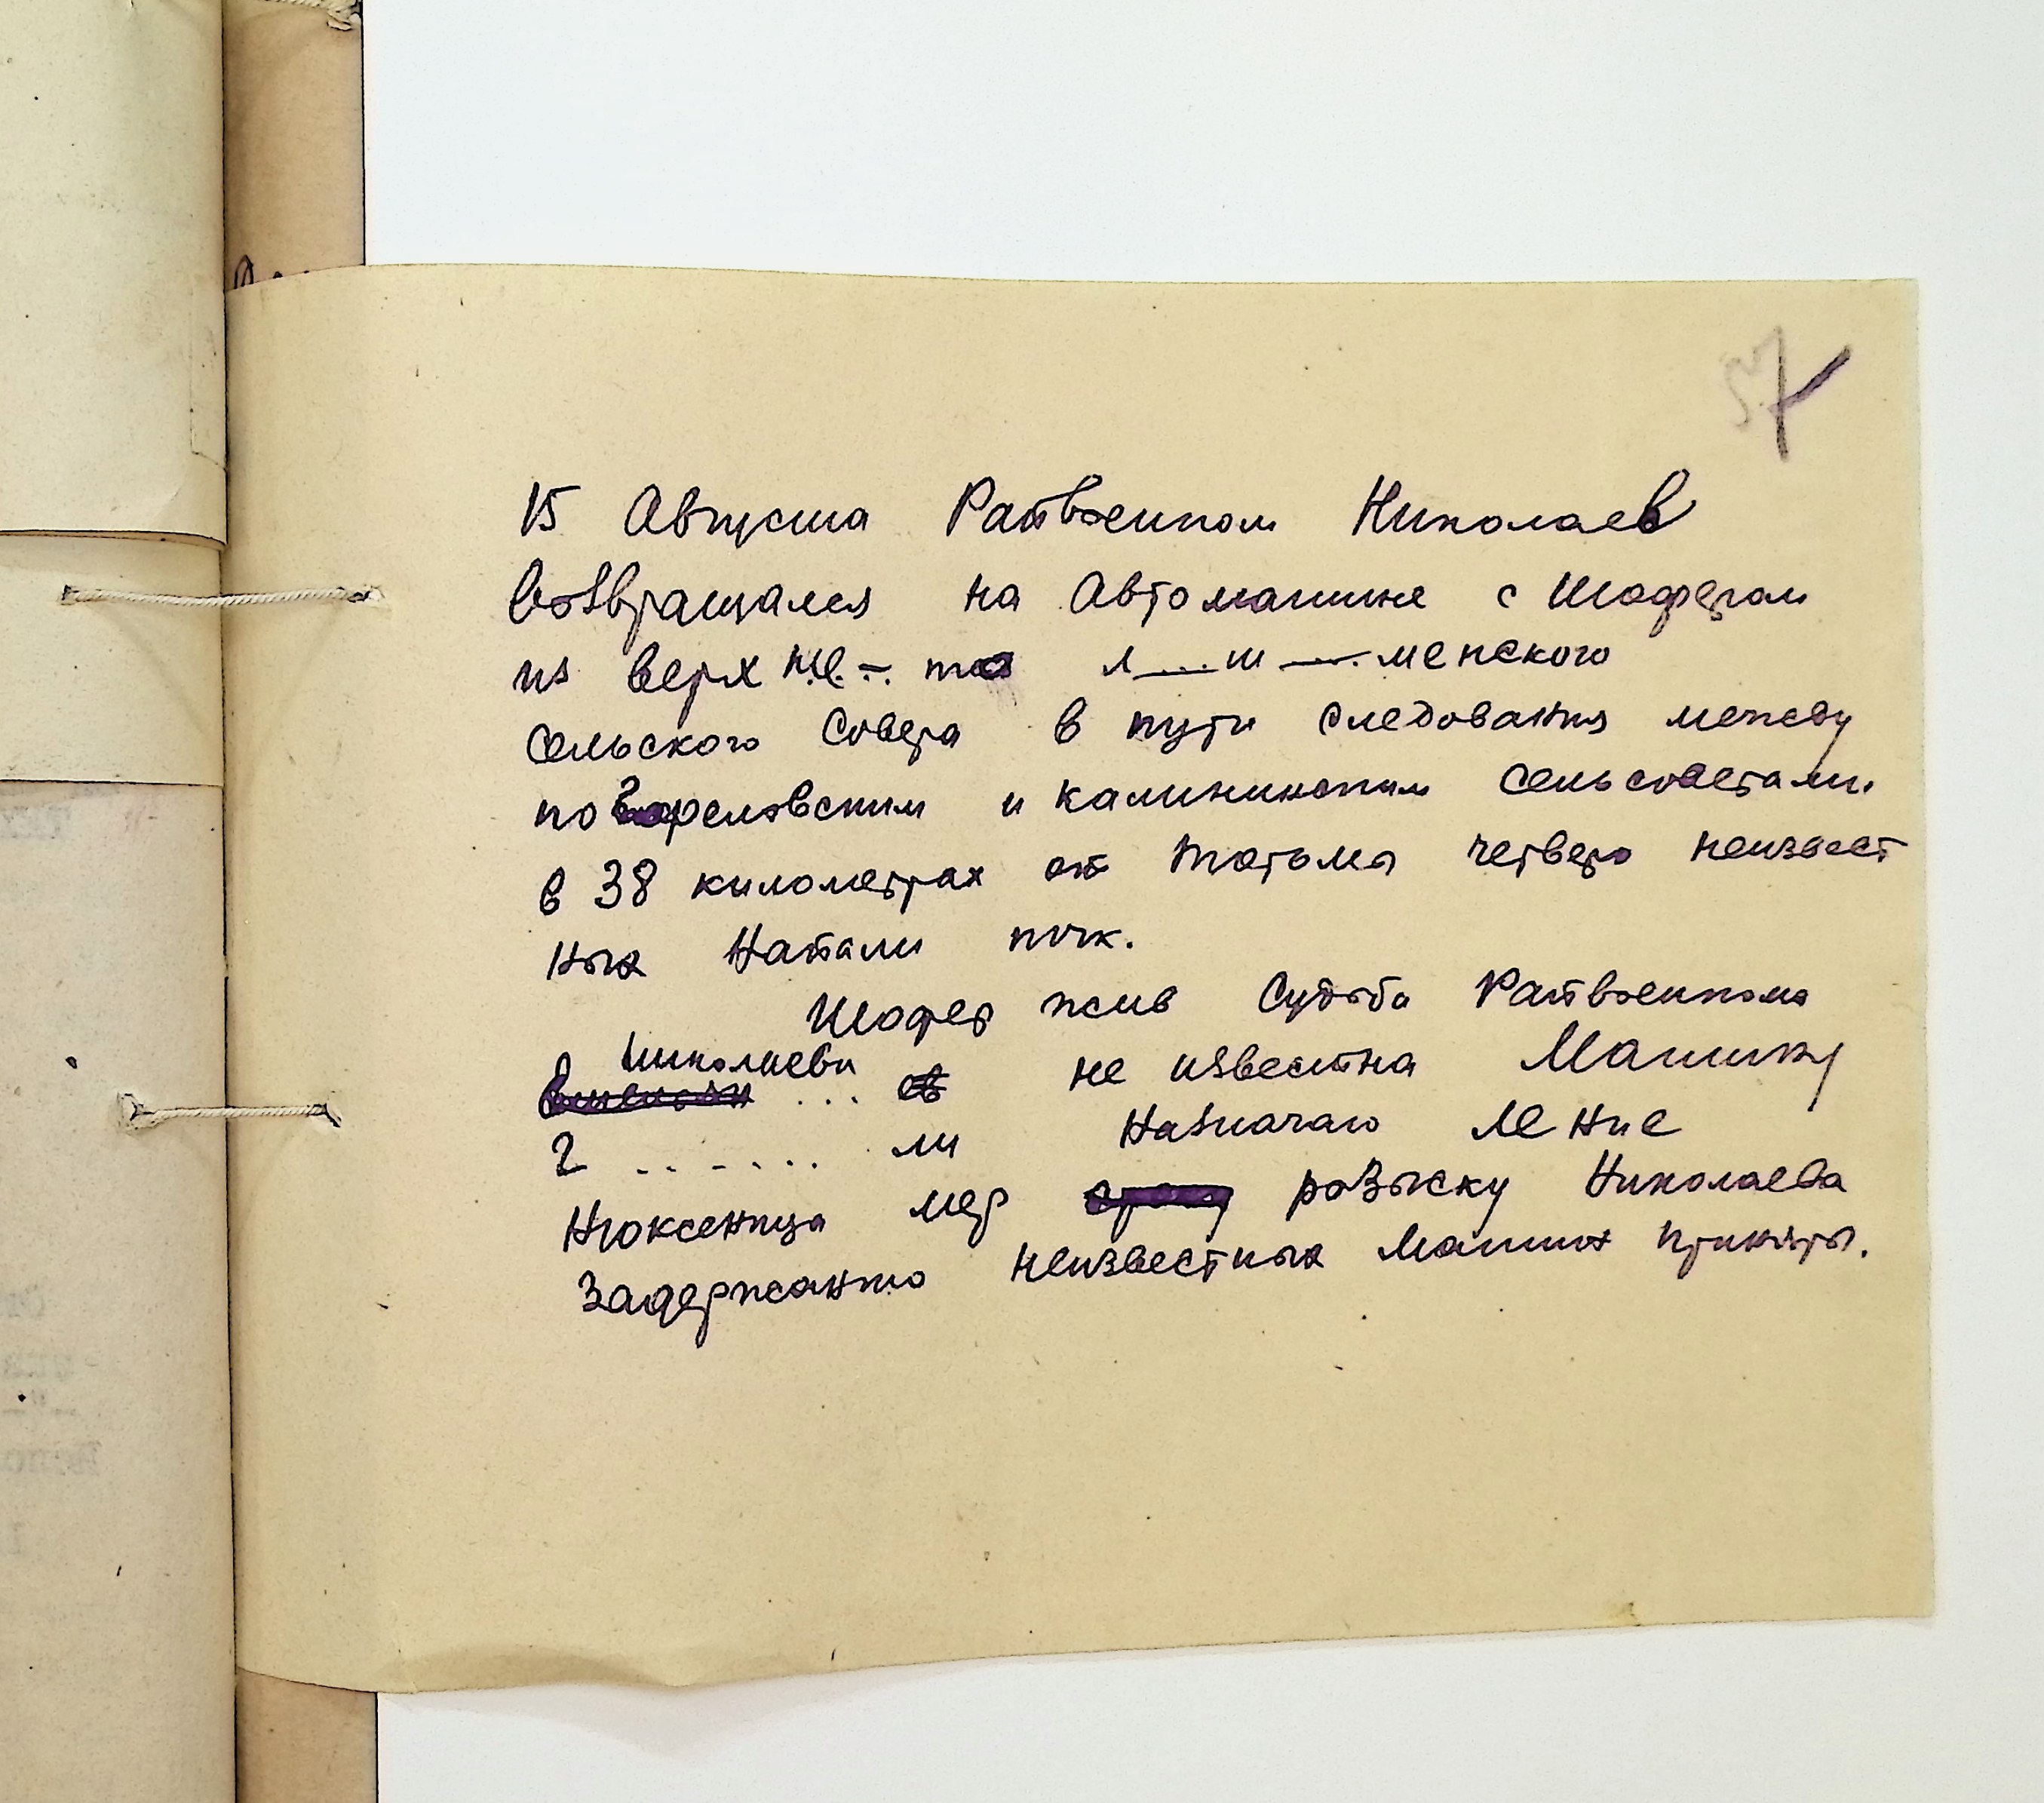 57
15 Августа Райвоенком Николаев
Возвращался на Автомашине с Шофером
из верх
сельского Совета в пути следования между
и калининским сельсоветами.
в 38 километрах от Тотьма четверо неизвест
ных Напали
Шофер жив Судьба Райвоенкома
Николаева не известна Машину
2 . . . . . . ли Назначаю ле ние
Нюксеница мер розыску Николаева
неизвестных Машин приняты.